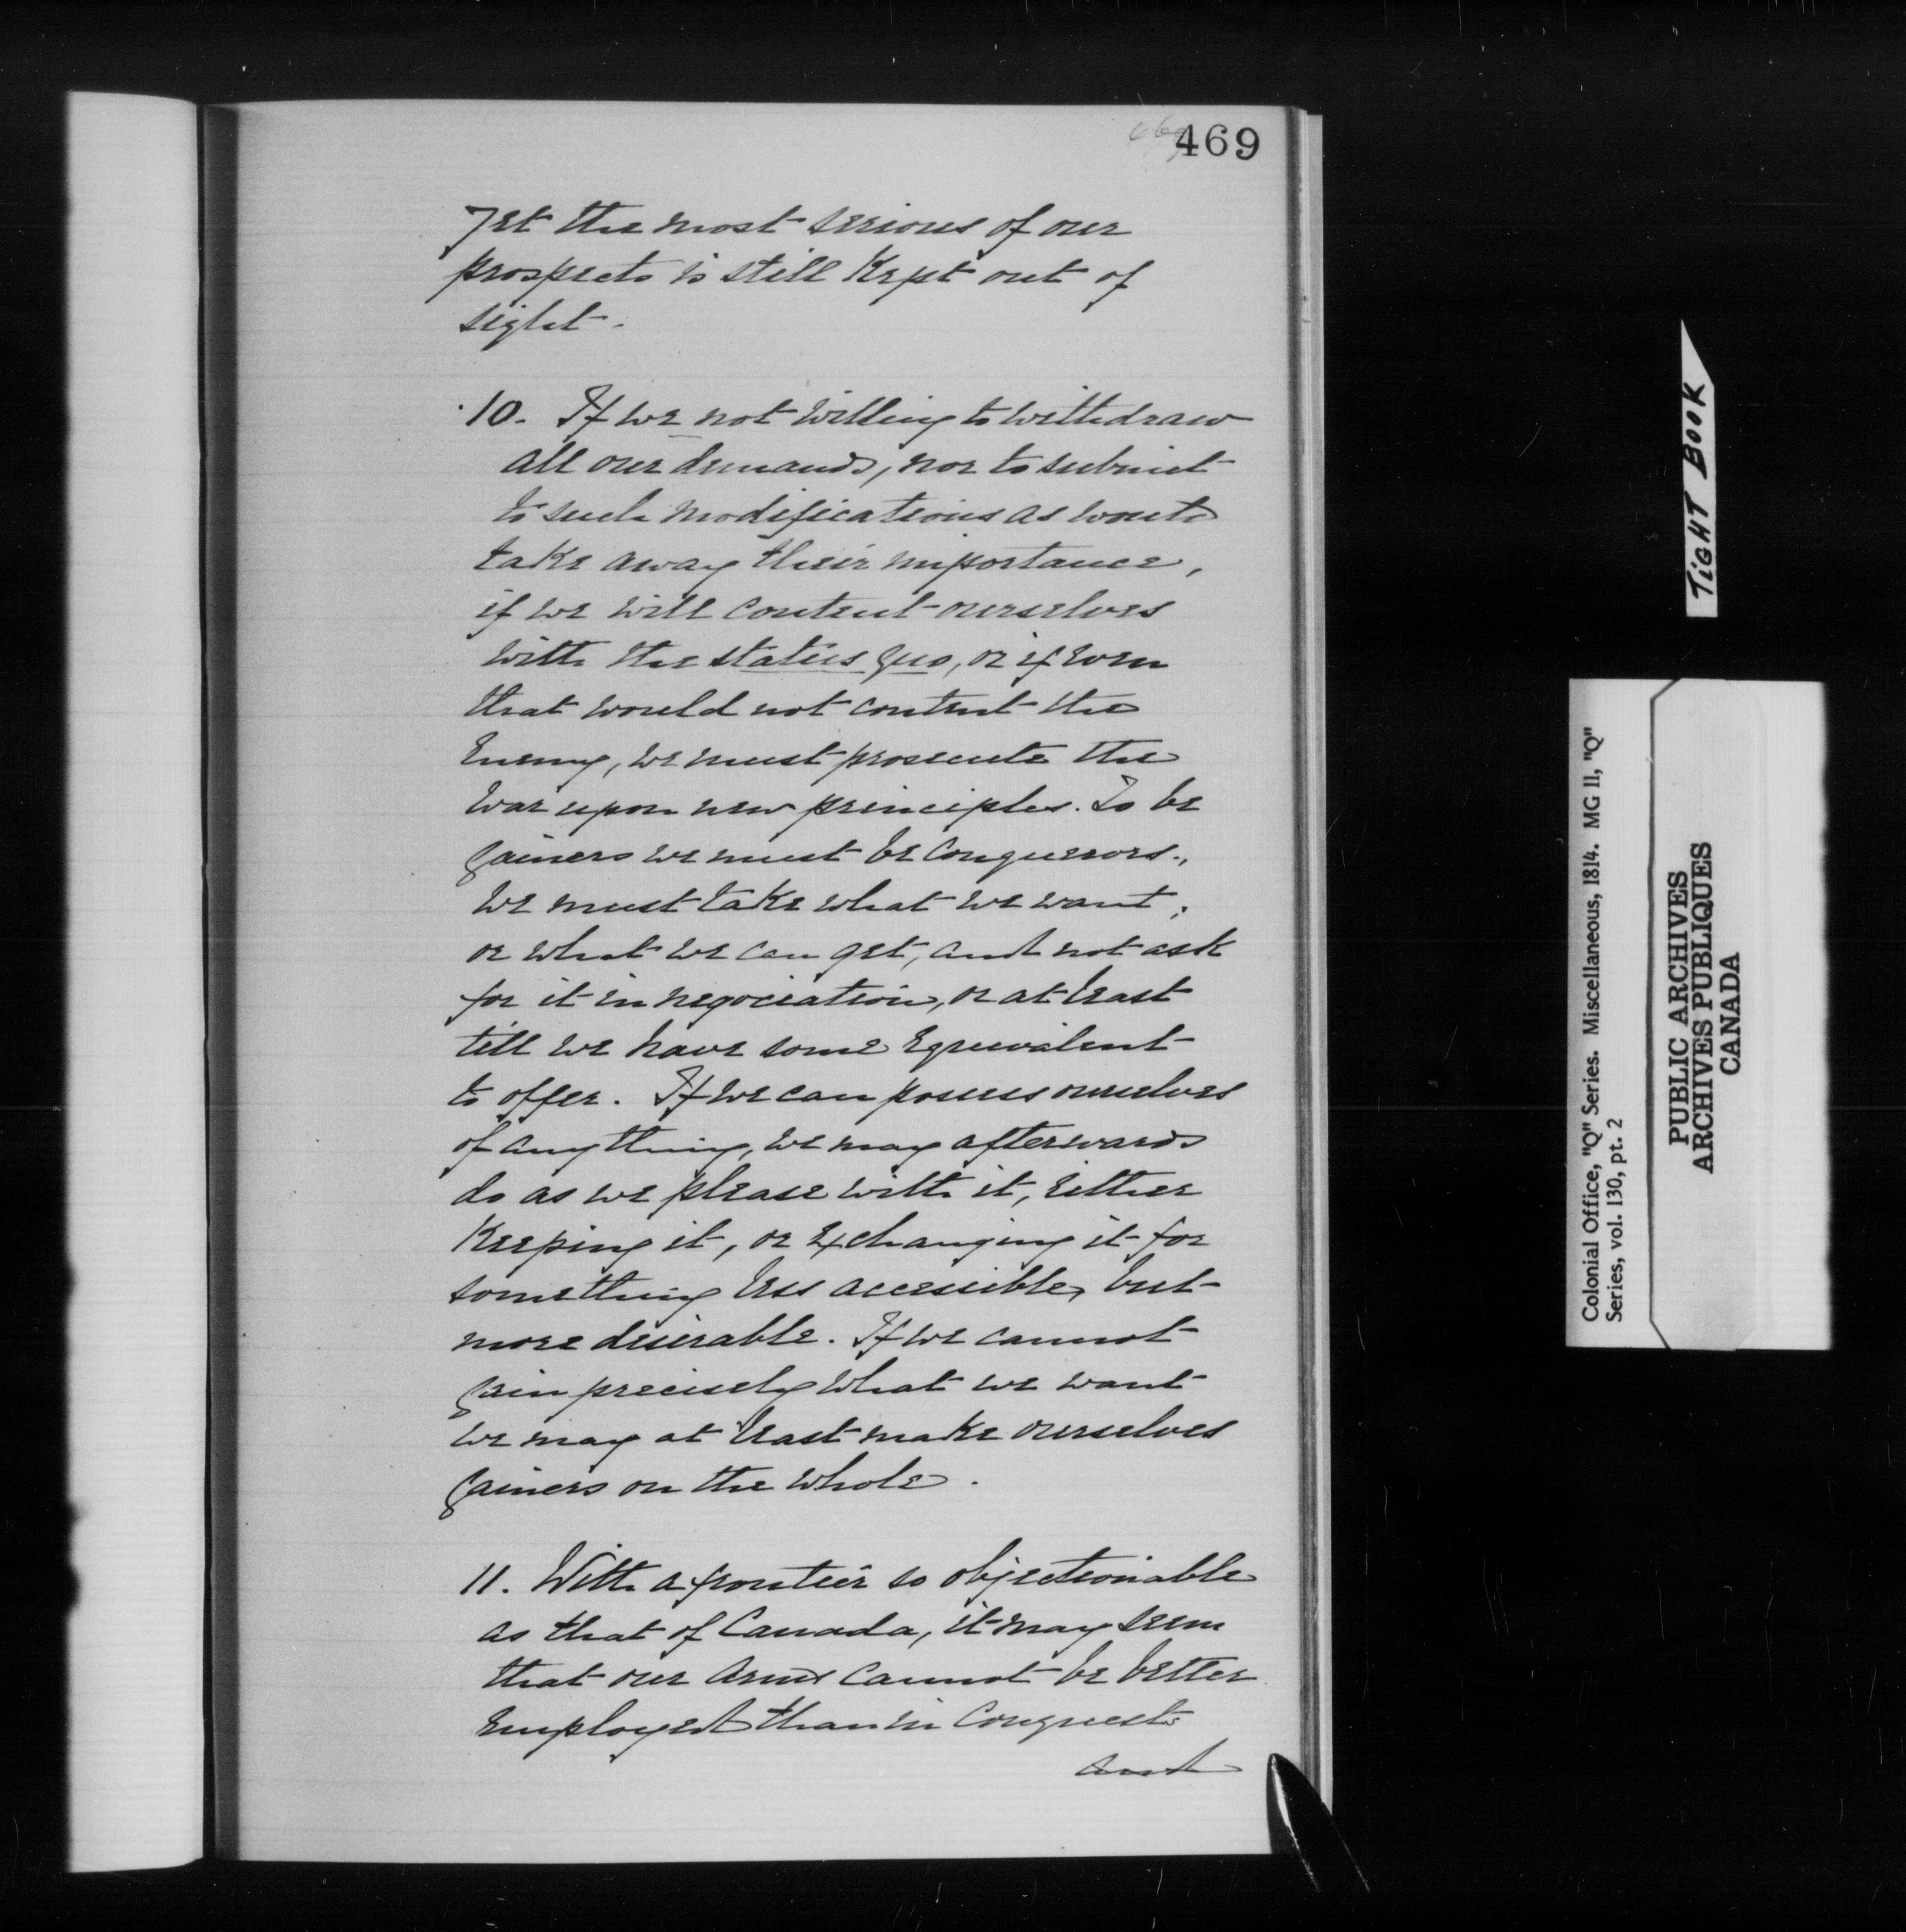 469
Yet the most serious of our
prospects is still Kept out of
sight.
10. If we not willing to withdraw
all our demands, nor to submit
to such modifications as would
take away their importance,
if we will content ourselves
with the status quo, or if even
that would not content the
Enemy, we must prosecute the
War upon new principles. To be
gainers we must be Conquerors.,
We must take what we want,
or what we can get, and not ask
for it in negociation, or at least
till we have some Equivalent
to offer. If we can possess ourselves
of anything, we may afterwards
do as we please with it, Either
Keeping it, or Exchanging it for
something less accessible, but
more desirable. If we cannot
gain precisely what we want
we may at least make ourselves
gainers on the whole.
11. With a frontier so objectionable
as that of Canada, it may seem
that our Arms cannot be better
Employed than in Conquests
and
TiGHT BOOK
Colonial Office, "Q" Series. Miscellaneous, 1814. MG 11, "Q"
Series, vol. 130, pt. 2
PUBLIC ARCHIVES
ARCHIVES PUBLIQUES
CANADA